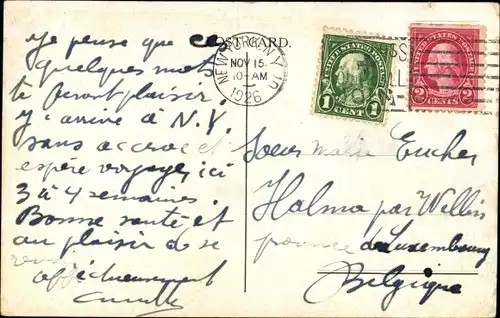 POST CARD.
NEW YORK, N.Y.
1
NOV 15
10-AM
1926
UNITED STATES POSTAGE
1 CENT 1
UNITED STATES POSTAGE
2 CENTS 2
Je pense que ce
quelques mots
te feront plaisir.
J'arrive à N.Y.
sans accroc et
espère voyager ici
3 à 4 semaines.
Bonne santé et
au plaisir de se
revoir
affectueusement
Camille
Soeur Marie Eucher
Halma par Wellin
province de Luxembourg
Belgique